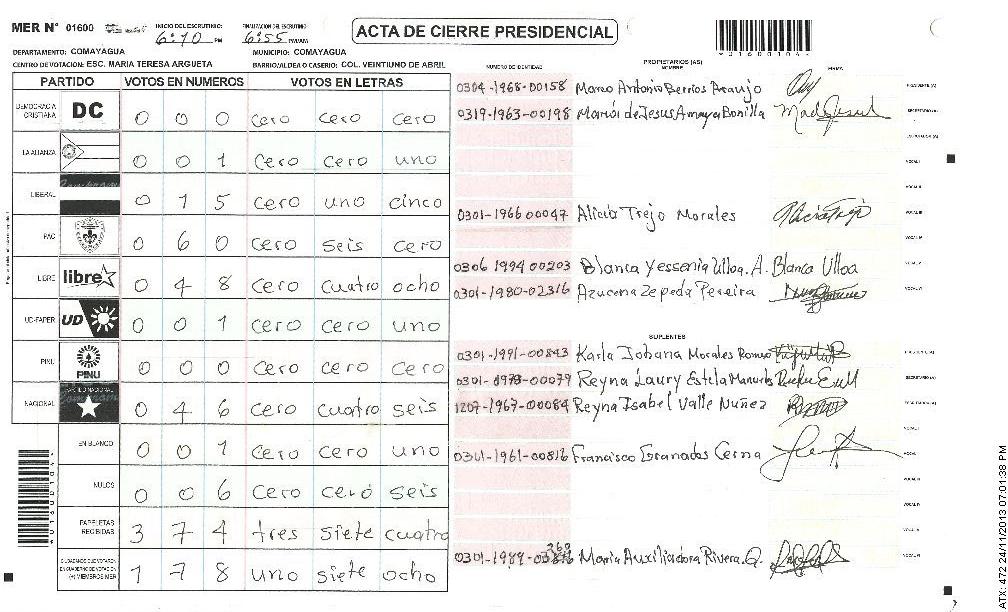 MER N° 01600 INICIO DEL ESCRUTINIO: 6:10 PM FINALIZACION DEL ESCRUTINIO 6:55 PM/AM ACTA DE CIERRE PRESIDENCIAL
*01600104*
DEPARTAMENTO: COMAYAGUA MUNICIPIO: COMAYAGUA
CENTRO DE VOTACIÓN: ESC. MARIA TERESA ARGUETA BARRIO/ALDEA O CASERIO: COL. VEINTIUNO DE ABRIL
PARTIDO VOTOS EN NUMEROS VOTOS EN LETRAS
DEMOCRACIA CRISTIANA DC 0 0 0 cero cero cero
LA ALIANZA 0 0 1 cero cero uno
LIBERAL 0 1 5 cero uno cinco
PAC 0 6 0 cero seis cero
LIBRE libre 0 4 8 cero cuatro ocho
UD-FAPER UD 0 0 1 cero cero uno
PINU PINU 0 0 0 cero cero cero
NACIONAL PARTIDO NACIONAL 0 4 6 cero cuatro seis
EN BLANCO 0 0 1 cero cero uno
NULOS 0 0 6 cero cero seis
PAPELETAS RECIBIDAS 3 7 4 tres siete cuatro
CIUDADANOS QUE VOTARON EN CUADERNO DE VOTACION (+) MIEMBROS MER 1 7 8 uno siete ocho
PROPIETARIOS (AS)
NUMERO DE IDENTIDAD NOMBRE FIRMA
0304-1968-00158 Marco Antonio Berrios Araujo PRESIDENTE (A)
0319-1963-00198 María de Jesus Amaya Bonilla SECRETARIO (A)
ESCRUTADOR (A)
VOCAL I
VOCAL II
0301-1966 00047 Alicia Trejo Morales VOCAL III
VOCAL IV
0306 1994 00203 Blanca Yessenia Ulloa. A. Blanca Ulloa VOCAL V
0301-1980-02316 Azucena Zepeda Pereira VOCAL VI
SUPLENTES
0301-1991-00843 Karla Johana Morales Romero PRESIDENTE (A)
0301-1973-00079 Reyna Laury Estela SECRETARIO (A)
1207-1967-00084 Reyna Isabel Valle Nuñez ESCRUTADOR (A)
VOCAL I
0301-1961-00816 Francisco Granados Cerna VOCAL
VOCAL III
VOCAL IV
VOCAL V
0301-1989- Maria Auxiliadora Rivera. O. VOCAL VI
*01600104*
ATX: 472 24/11/2013 07:01:38 PM